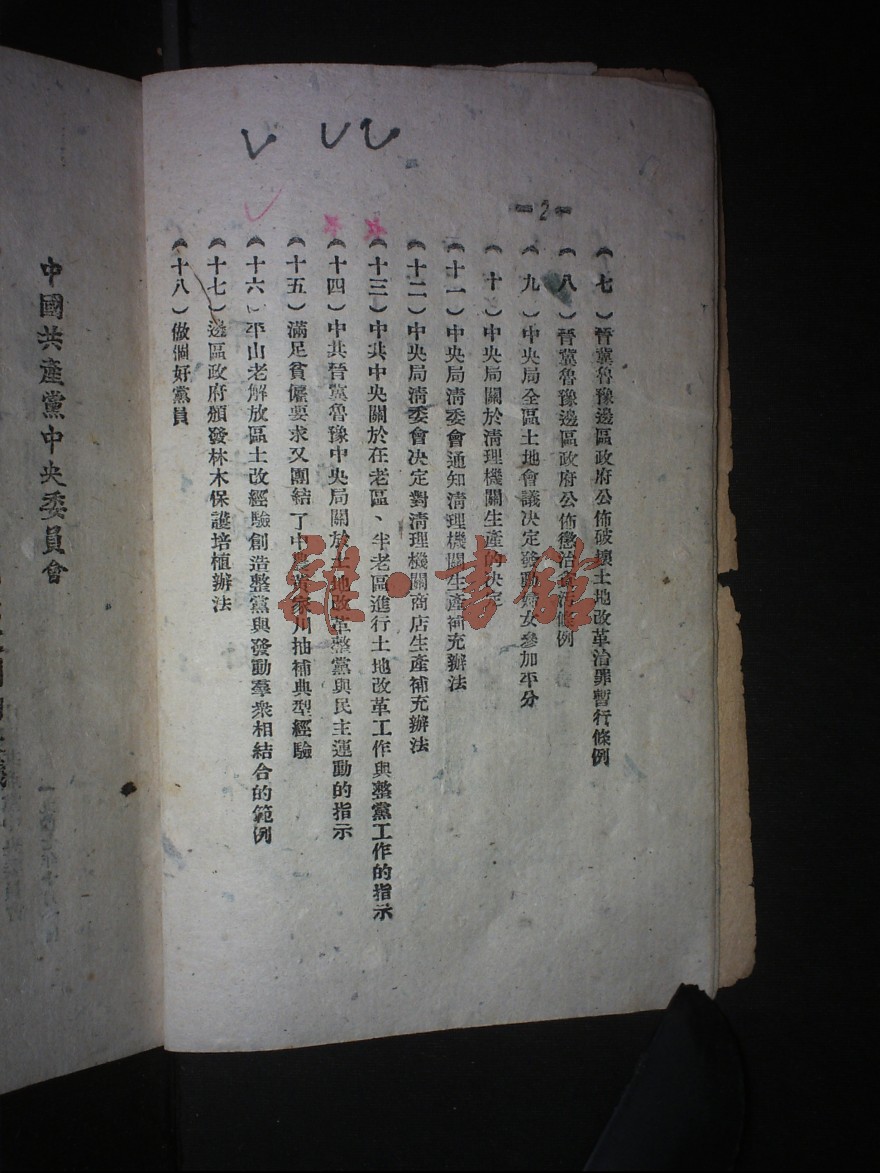 -2-
（七）晉冀魯豫邊區政府公佈破壞土地改革治罪暫行條例
（八）晉冀魯豫邊區政府公佈懲治貪污條例
（九）中央局全區土地會議決定發動婦女參加平分
（十）中央局關於清理機關生產的決定
（十一）中央局清委會通知清理機關生產補充辦法
（十二）中央局清委會決定對清理機關商店生產補充辦法
（十三）中共中央關於在老區、半老區進行土地改革工作與整黨工作的指示
（十四）中共晉冀魯豫中央局關於土地改革整黨與民主運動的指示
（十五）滿足貧僱要求又團結了中農黃家川抽補典型經驗
（十六）平山老解放區土改經驗創造整黨與發動羣衆相結合的範例
（十七）邊區政府頒發林木保護培植辦法
（十八）做個好黨員
中國共產黨中央委員會
雜·書館